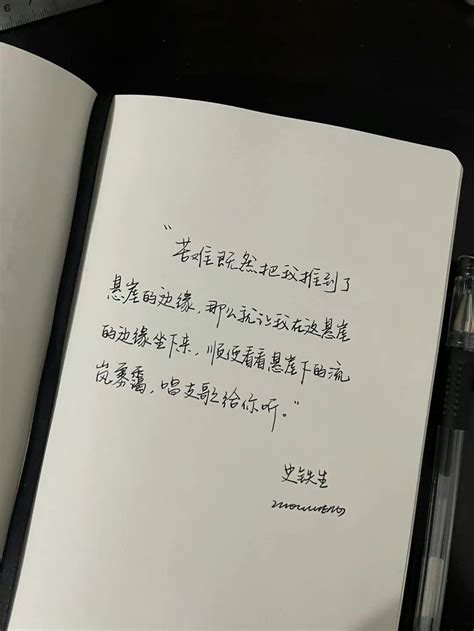 6 7
"苦难既然把我推到了
悬崖的边缘，那么就让我在这悬崖
的边缘坐下来，顺便看看悬崖下的流
岚雾霭，唱支歌给你听。"
史铁生